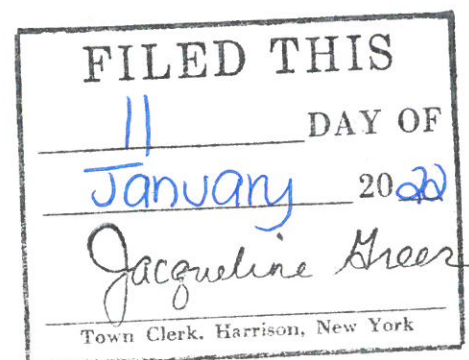 FILED THIS
11 DAY OF
January 2022
Jacqueline Greer
Town Clerk. Harrison, New York